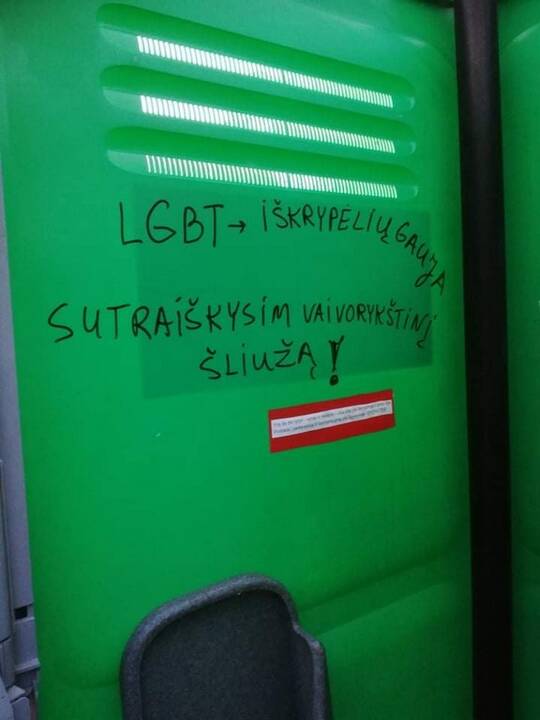 LGBT → IŠKRYPĖLIŲ GAUJA
SUTRAIŠKYSIM VAIVORYKŠTINĮ
ŠLIUŽĄ!